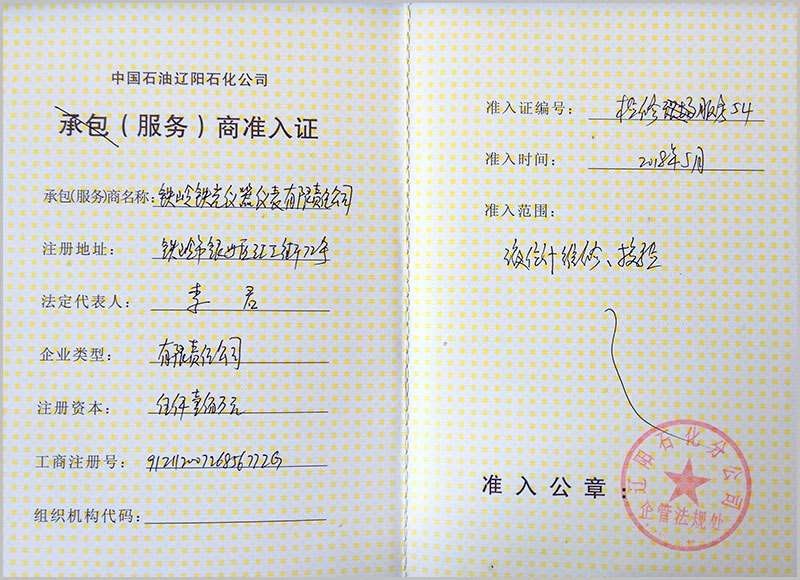 中国石油辽阳石化公司
承包（服务）商准入证
承包(服务)商名称：铁岭铁光仪器仪表有限责任公司
注册地址：铁岭市银州区汇工街72号
法定代表人：李君
企业类型：有限责任公司
注册资本：
工商注册号：
组织机构代码：
准入证编号：检修现场服务54
准入时间：2018年5月
准入范围：
液位计维修、校验
准入公章：
辽阳石化分公司
企管法规处